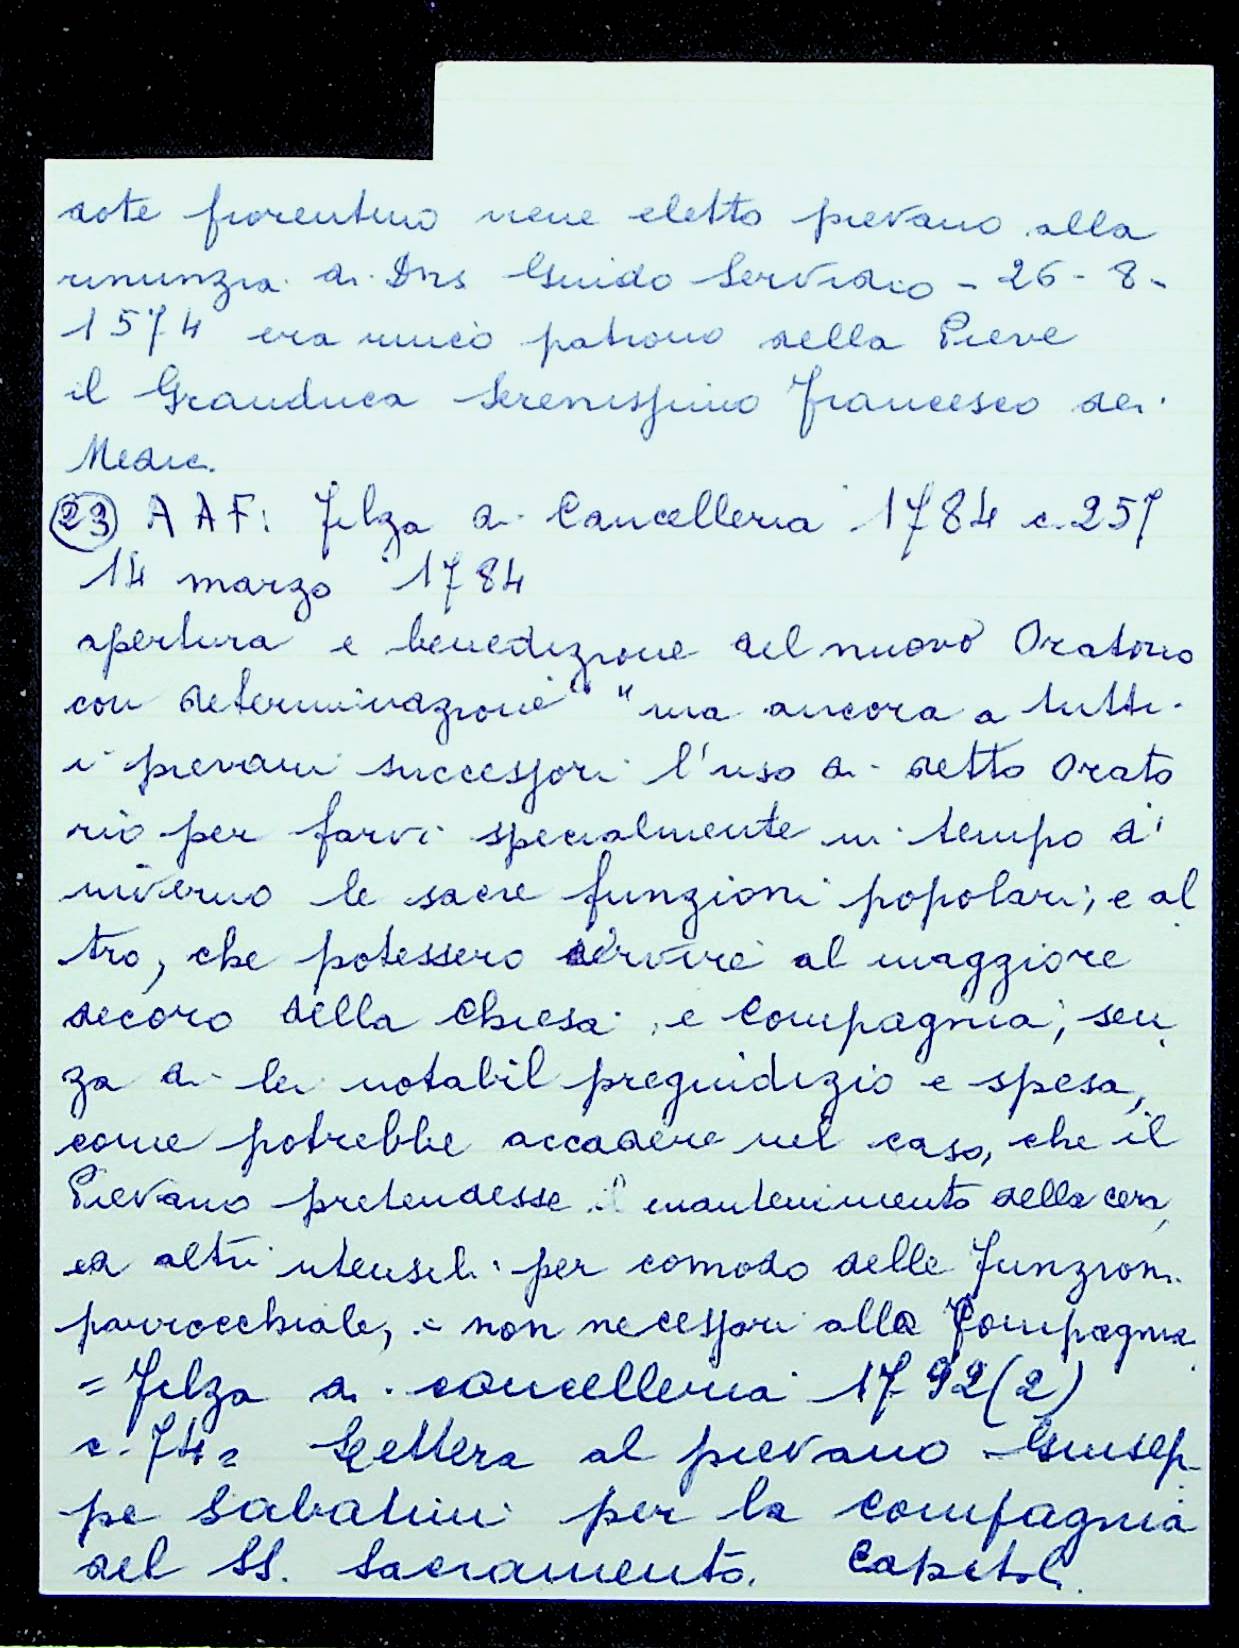 dote fiorentino viene eletto pievano alla
rinunzia di Dns Guido Servidio - 26 - 8 -
1574 era unico patrono della Pieve
il Granduca Serenissimo Francesco dei
Medici.
(23) A A F: Filza di Cancelleria 1784 c. 257
14 marzo 1784
apertura e benedizione del nuovo Oratorio
con determinazione " ma ancora a tutti
i pievani successori l'uso di detto Orato
rio per farvi specialmente in tempo d'
inverno le sacre funzioni popolari; e al
tro, che potessero servire al maggiore
decoro della Chiesa, e Compagnia; sen
za di lei notabil pregiudizio e spesa,
come potrebbe accadere nel caso, che il
Pievano pretendesse il mantenimento della cera,
ed altri utensili per comodo delle Funzioni
parrocchiale, e non necessari alla Compagnia
= Filza di cancelleria 1792 (2)
c. 74 = Lettera al pievano Giusep
pe Sabatini per la Compagnia
del SS. Sacramento. Capitoli.